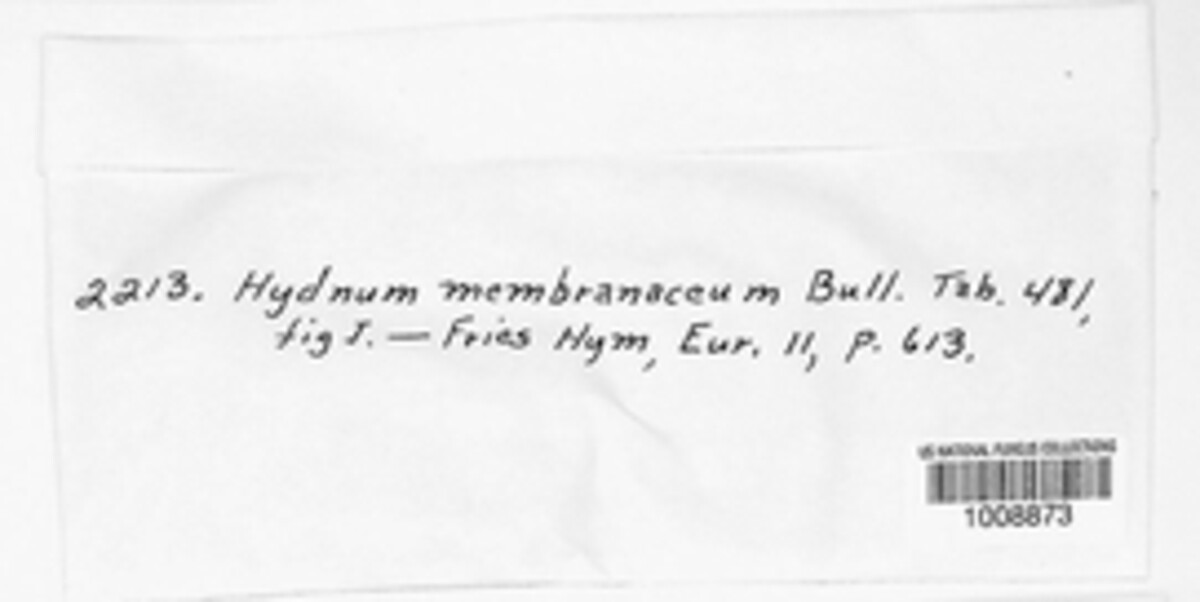 2213. Hydnum membranaceum Bull. Tab. 481,
fig I. — Fries Hym, Eur. 11, p. 613.
US NATIONAL FUNGUS COLLECTIONS
1008873